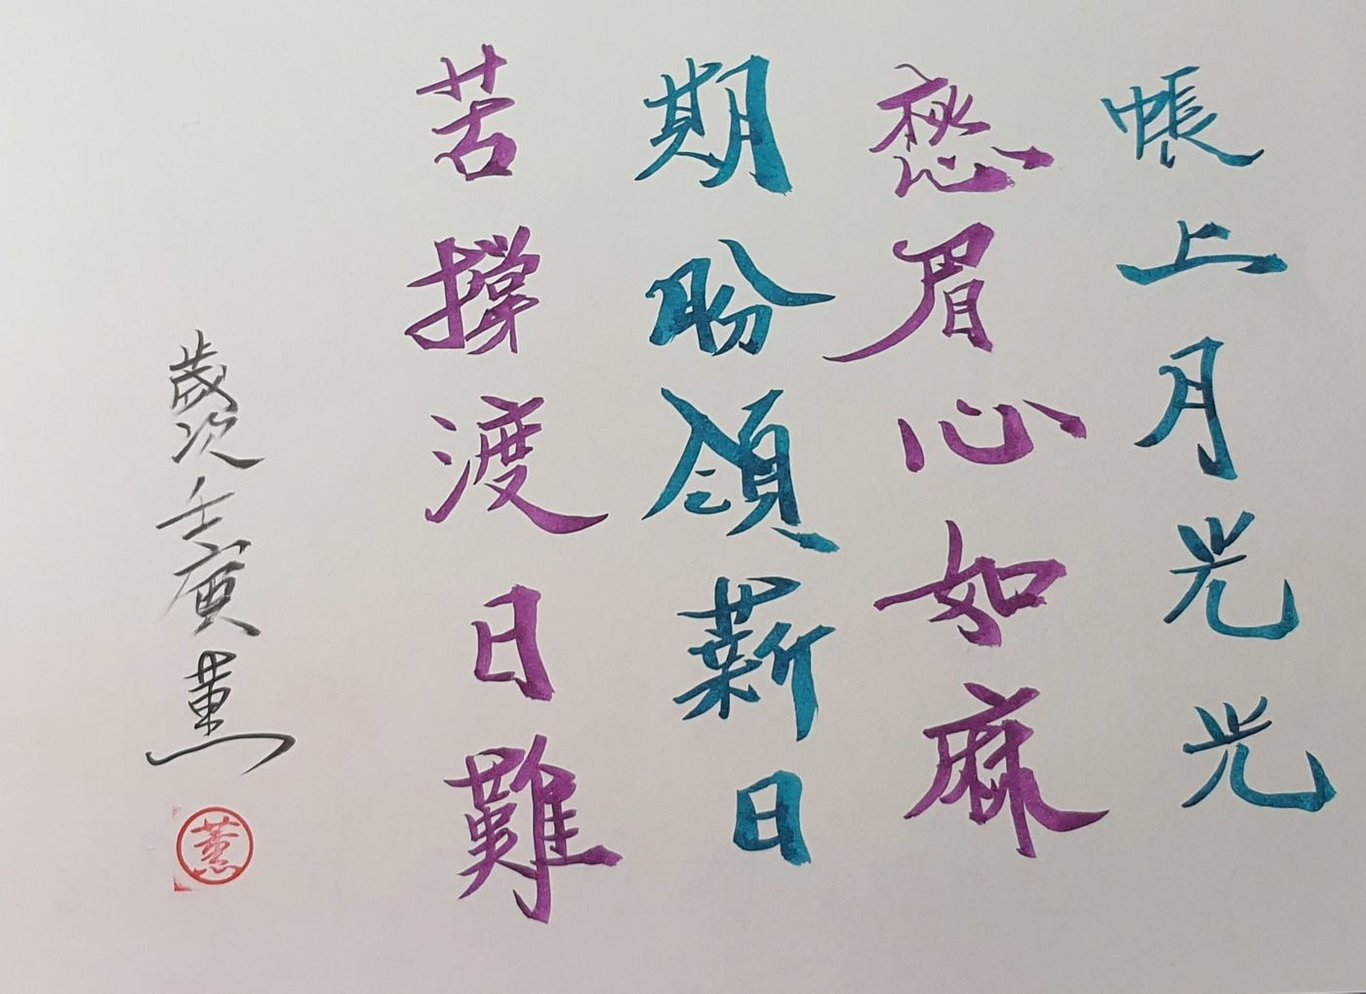 帳上月光光
愁眉心如麻
期盼領薪日
苦撐渡日難
歲次壬寅蕙
蕙